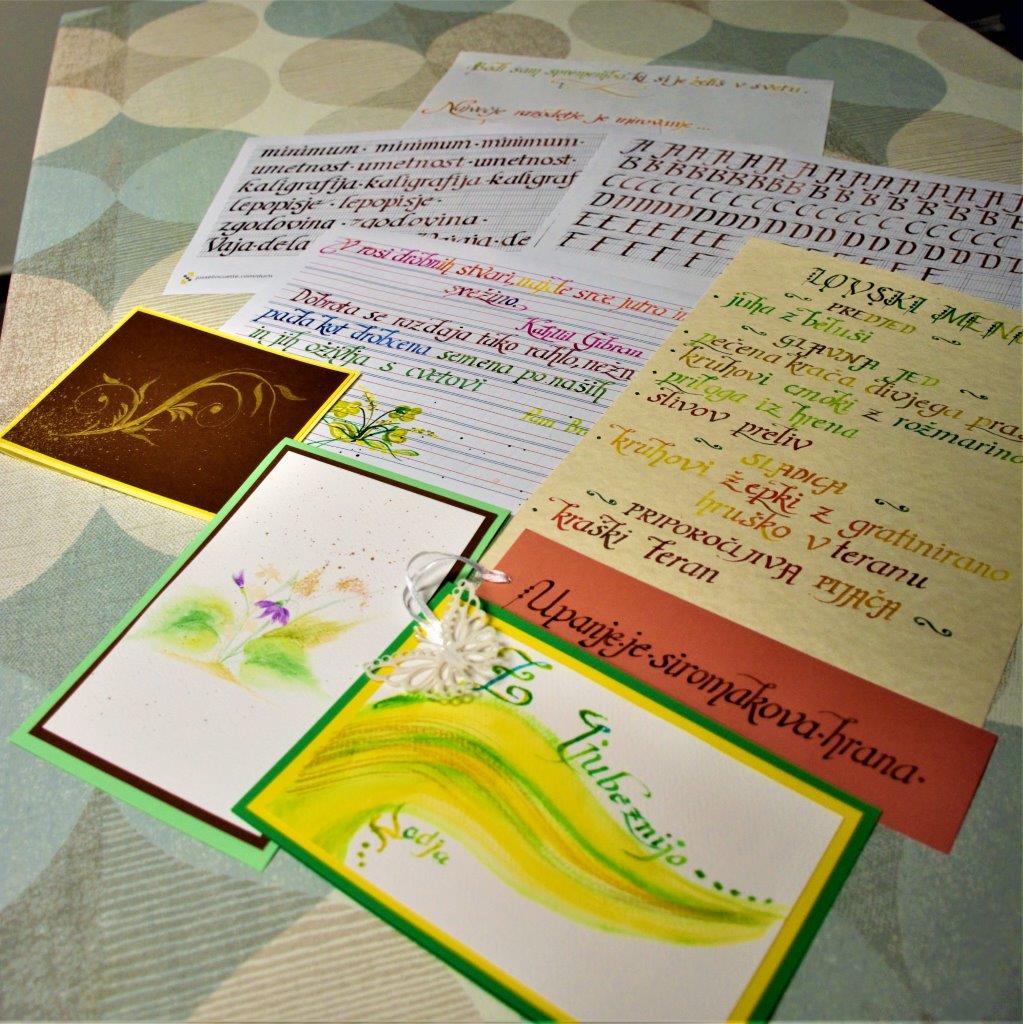 Bodi sam sprememba, ki si jo želiš v svetu.
Največje razodetje je mirovanje...
minimum· minimum·minimum·
umetnost·umetnost·umetnost·
kaligrafija·kaligrafija·kaligraf
lepopisje·lepopisje·
zgodovina·zgodovina·
Vaja·dela
A A A A A A A A A A
B B B B B B B B B B B B
C C C C C C C C C C C C C
D D D D D D D D D D D D D
E E E E E E E
F F F F F F
V rosi drobnih stvari, najde srce jutro in
svežino.
Kahlil Gibran
Dobrota se razdaja tako rahlo, nežn
pada kot drobcena semena po naših
in jih oživlja s cvetovi
LOVSKI MENI
PREDJED
· juha z beluši
GLAVNA JED
· pečena krača divjega pra
· kruhovi cmoki z rožmarino
· priloga iz hrena
· slivov preliv
SLADICA
· kruhovi žepki z gratinirano
hruško v teranu
PRIPOROČLJIVA PIJAČA
· kraški teran
Upanje·je·siromakova·hrana·
Z ljubeznijo
Nadja